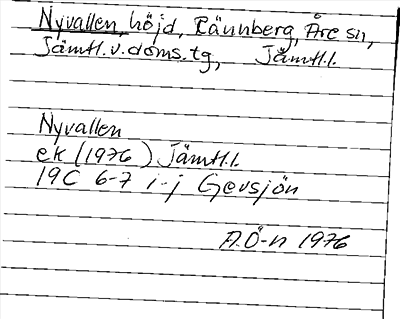 Nyvallen, höjd, Rännberg, Åre sn,
Jämtl.v.doms.tg, Jämtl.l.
Nyvallen
ek (1976) Jämtl.l.
19C 6-7 i-j Gevsjön
A.Ö-n 1976